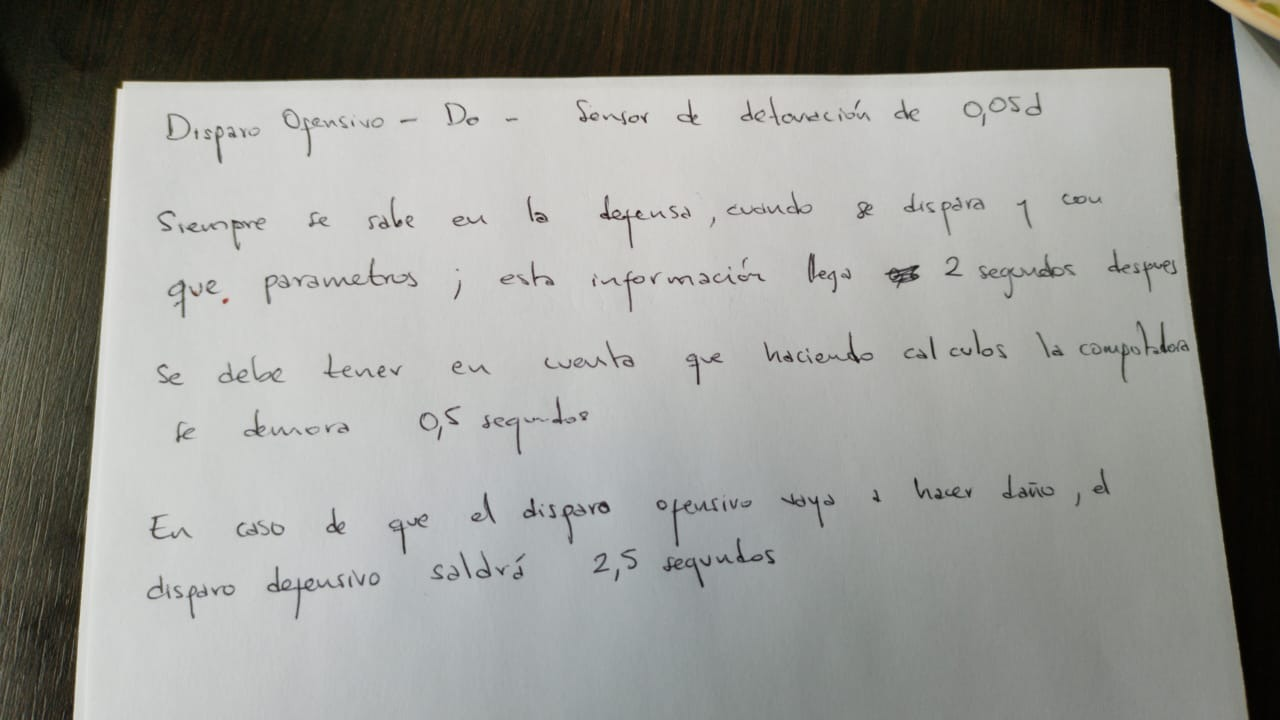 Disparo Ofensivo - Do - Sensor de detonación de 0,05d
Siempre se sabe en la defensa, cuando se dispara y con
que. parametros ; esta información llega 2 segundos despues
Se debe tener en cuenta que haciendo calculos la computadora
se demora 0,5 segundos
En caso de que el disparo ofensivo vaya a hacer daño, el
disparo defensivo saldrá 2,5 segundos